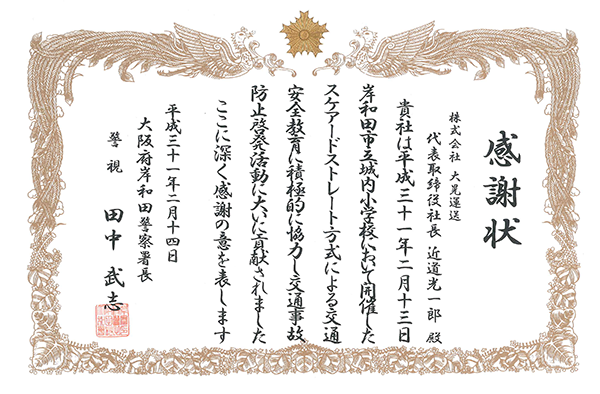 感謝状
株式会社 大晃運送
代表取締役社長 近道光一郎 殿
貴社は平成三十一年二月十三日
岸和田市立城内小学校において開催した
スケアードストレート方式による交通
安全教育に積極的に協力し交通事故
防止啓発活動に大いに貢献されました
ここに深く感謝の意を表します
平成三十一年二月十四日
大阪府岸和田警察署長
警視 田中武志